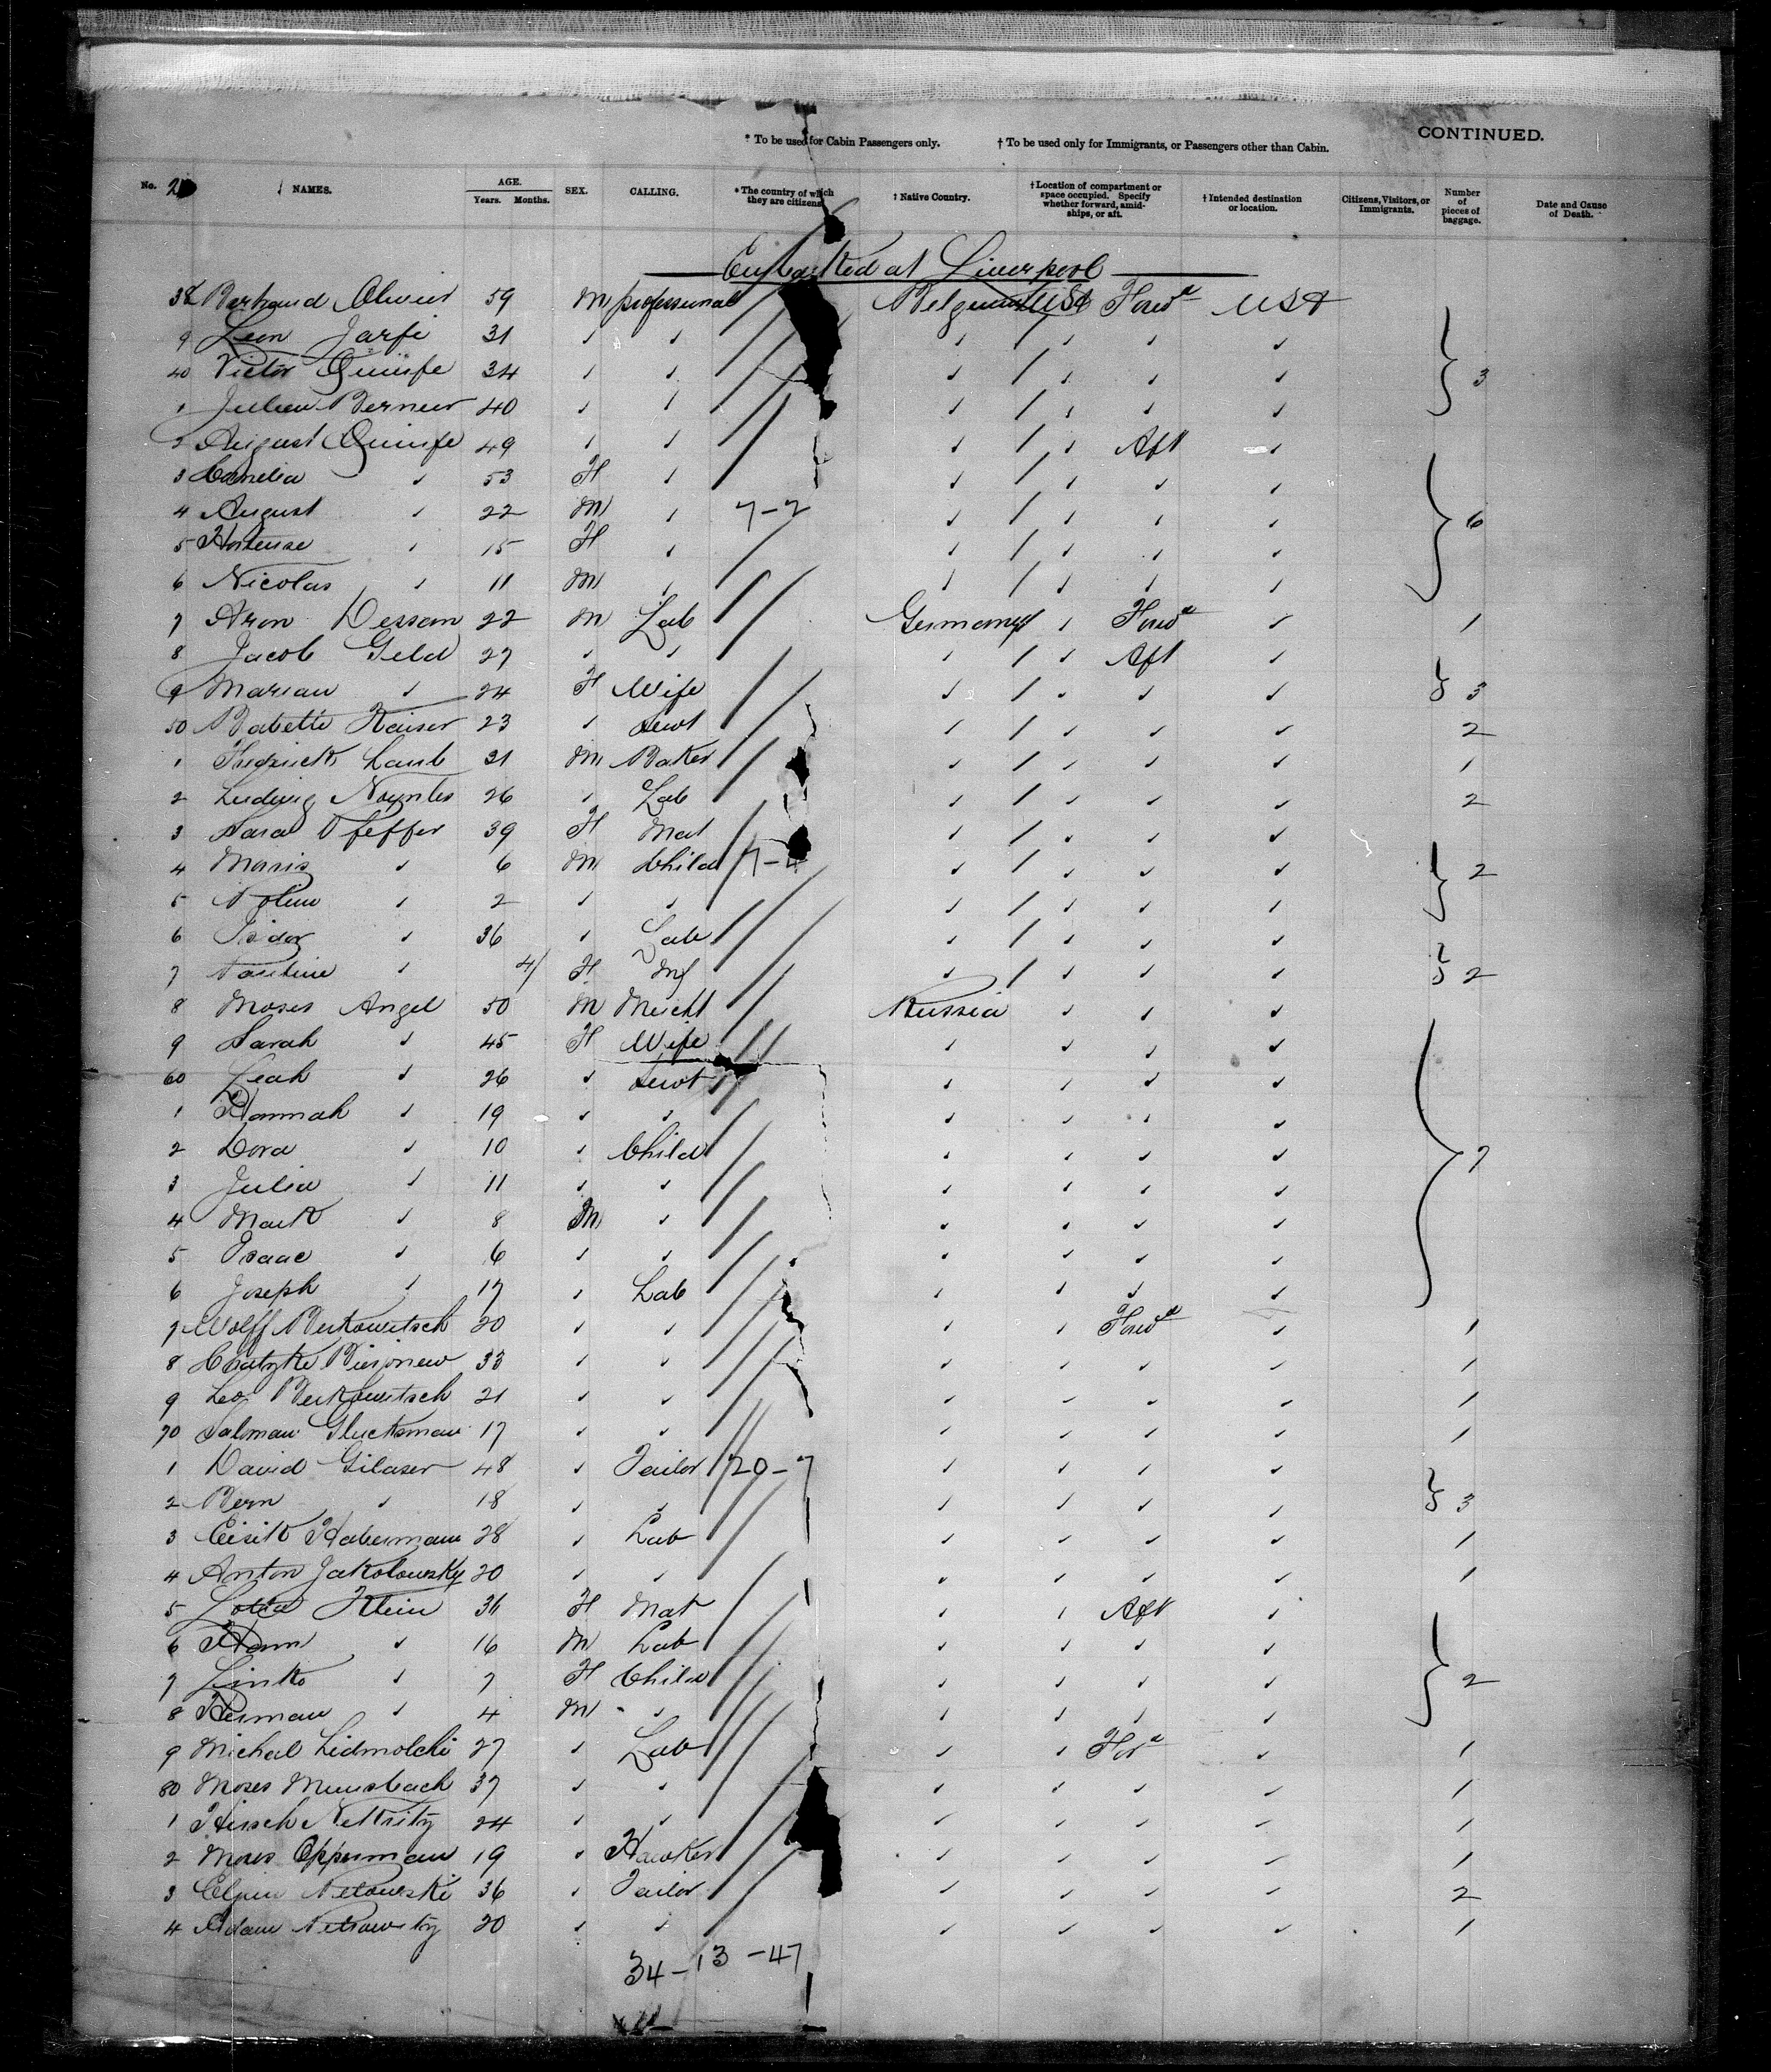 CONTINUED.
* To be used for Cabin Passengers only. † To be used only for Immigrants, or Passengers other than Cabin.
No. NAMES. AGE. Years. Months. SEX. CALLING. * The country of which they are citizens. † Native Country. † Location of compartment or space occupied. Specify whether forward, amidships, or aft. † Intended destination or location. Citizens, Visitors, or Immigrants. Number of pieces of baggage. Date and Cause of Death.
Embarked at Liverpool
38 Bertrand Olivier 59 M professional Belgium USA Forwd USA
9 Leon Jarfi 31 ✓ ✓ ✓ / ✓ ✓ ✓
40 Victor 34 ✓ ✓ ✓ / ✓ ✓ ✓ } 3
1 Julien Bernier 40 ✓ ✓ ✓ / ✓ ✓ ✓
2 August 49 ✓ ✓ ✓ / ✓ Aft ✓
3 ✓ 53 F ✓ ✓ / ✓ ✓ ✓
4 August ✓ 22 M ✓ 7-2 ✓ / ✓ ✓ ✓ } 6
5 Hortense ✓ 15 F ✓ ✓ / ✓ ✓ ✓
6 Nicolas ✓ 11 M ✓ ✓ / ✓ ✓ ✓
7 Aron Dessom 22 M Lab Germany / ✓ Forwd ✓ 1
8 Jacob Geld 27 ✓ ✓ ✓ / ✓ Aft ✓
9 Marian ✓ 24 F Wife ✓ / ✓ ✓ ✓ } 3
50 Babette Kaiser 23 ✓ Sevt ✓ / ✓ ✓ ✓ 2
1 Fredrick Laub 31 M Baker ✓ / ✓ ✓ ✓ 1
2 Ludwig 26 ✓ Lab ✓ / ✓ ✓ ✓ 2
3 Sara Pfeffer 39 F Mat ✓ / ✓ ✓ ✓
4 Moris ✓ 6 M Child 7-4 ✓ / ✓ ✓ ✓ } 2
5 ✓ 2 ✓ ✓ ✓ / ✓ ✓ ✓
6 Isidor ✓ 36 ✓ Lab ✓ / ✓ ✓ ✓
7 Pauline ✓ 4/ F Inf ✓ / ✓ ✓ ✓ } 2
8 Moses Angel 50 M Mercht Russia ✓ ✓ ✓
9 Sarah ✓ 45 F Wife ✓ ✓ ✓ ✓
60 Leah ✓ 26 ✓ Sevt ✓ ✓ ✓ ✓
1 Hannah ✓ 19 ✓ ✓ ✓ ✓ ✓ ✓
2 Dora ✓ 10 ✓ Child ✓ ✓ ✓ ✓ } 7
3 Julia ✓ 11 ✓ ✓ ✓ ✓ ✓ ✓
4 Mark ✓ 8 M ✓ ✓ ✓ ✓ ✓
5 Isaac ✓ 6 ✓ ✓ ✓ ✓ ✓ ✓
6 Joseph ✓ 17 ✓ Lab ✓ ✓ ✓ ✓
7 Wolff Berkowitsch 20 ✓ ✓ ✓ ✓ Forwd ✓ 1
8 33 ✓ ✓ ✓ ✓ ✓ ✓ 1
9 Leo Berkowitsch 21 ✓ ✓ ✓ ✓ ✓ ✓ 1
70 Salman Glucksman 17 ✓ ✓ ✓ ✓ ✓ ✓ 1
1 David Gilaser 48 ✓ Tailor 20-7 ✓ ✓ ✓ ✓
2 Bern ✓ 18 ✓ ✓ ✓ ✓ ✓ ✓ } 3
3 Eisik Haberman 28 ✓ Lab ✓ ✓ ✓ ✓ 1
4 Anton Jakolowsky 20 ✓ ✓ ✓ ✓ ✓ ✓ 1
5 Klein 36 F Mat ✓ ✓ Aft ✓
6 ✓ 16 M Lab ✓ ✓ ✓ ✓
7 ✓ 7 F Child ✓ ✓ ✓ ✓ } 2
8 Herman ✓ 4 M ✓ ✓ ✓ ✓ ✓
9 Michal Lidmolchi 27 ✓ Lab ✓ ✓ Ford ✓ 1
80 Moses Munsbach 37 ✓ ✓ ✓ ✓ ✓ ✓ 1
1 Hirsch 24 ✓ ✓ ✓ ✓ ✓ ✓ 1
2 Moses Opperman 19 ✓ Hawker ✓ ✓ ✓ ✓ 1
3 36 ✓ Tailor ✓ ✓ ✓ ✓ 2
4 Adam 20 ✓ ✓ ✓ ✓ ✓ ✓ 1
34-13-47